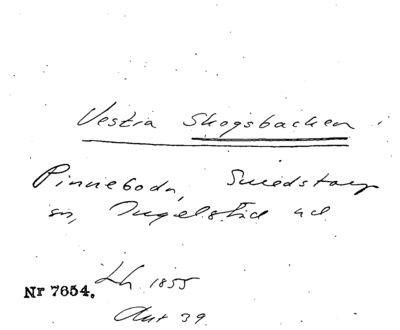 Vestra Skogsbacken i
Pinneboda, Smedstorp
sn, Ingelstad hd
Lh. 1855
Nr 7654.
Ant 39.